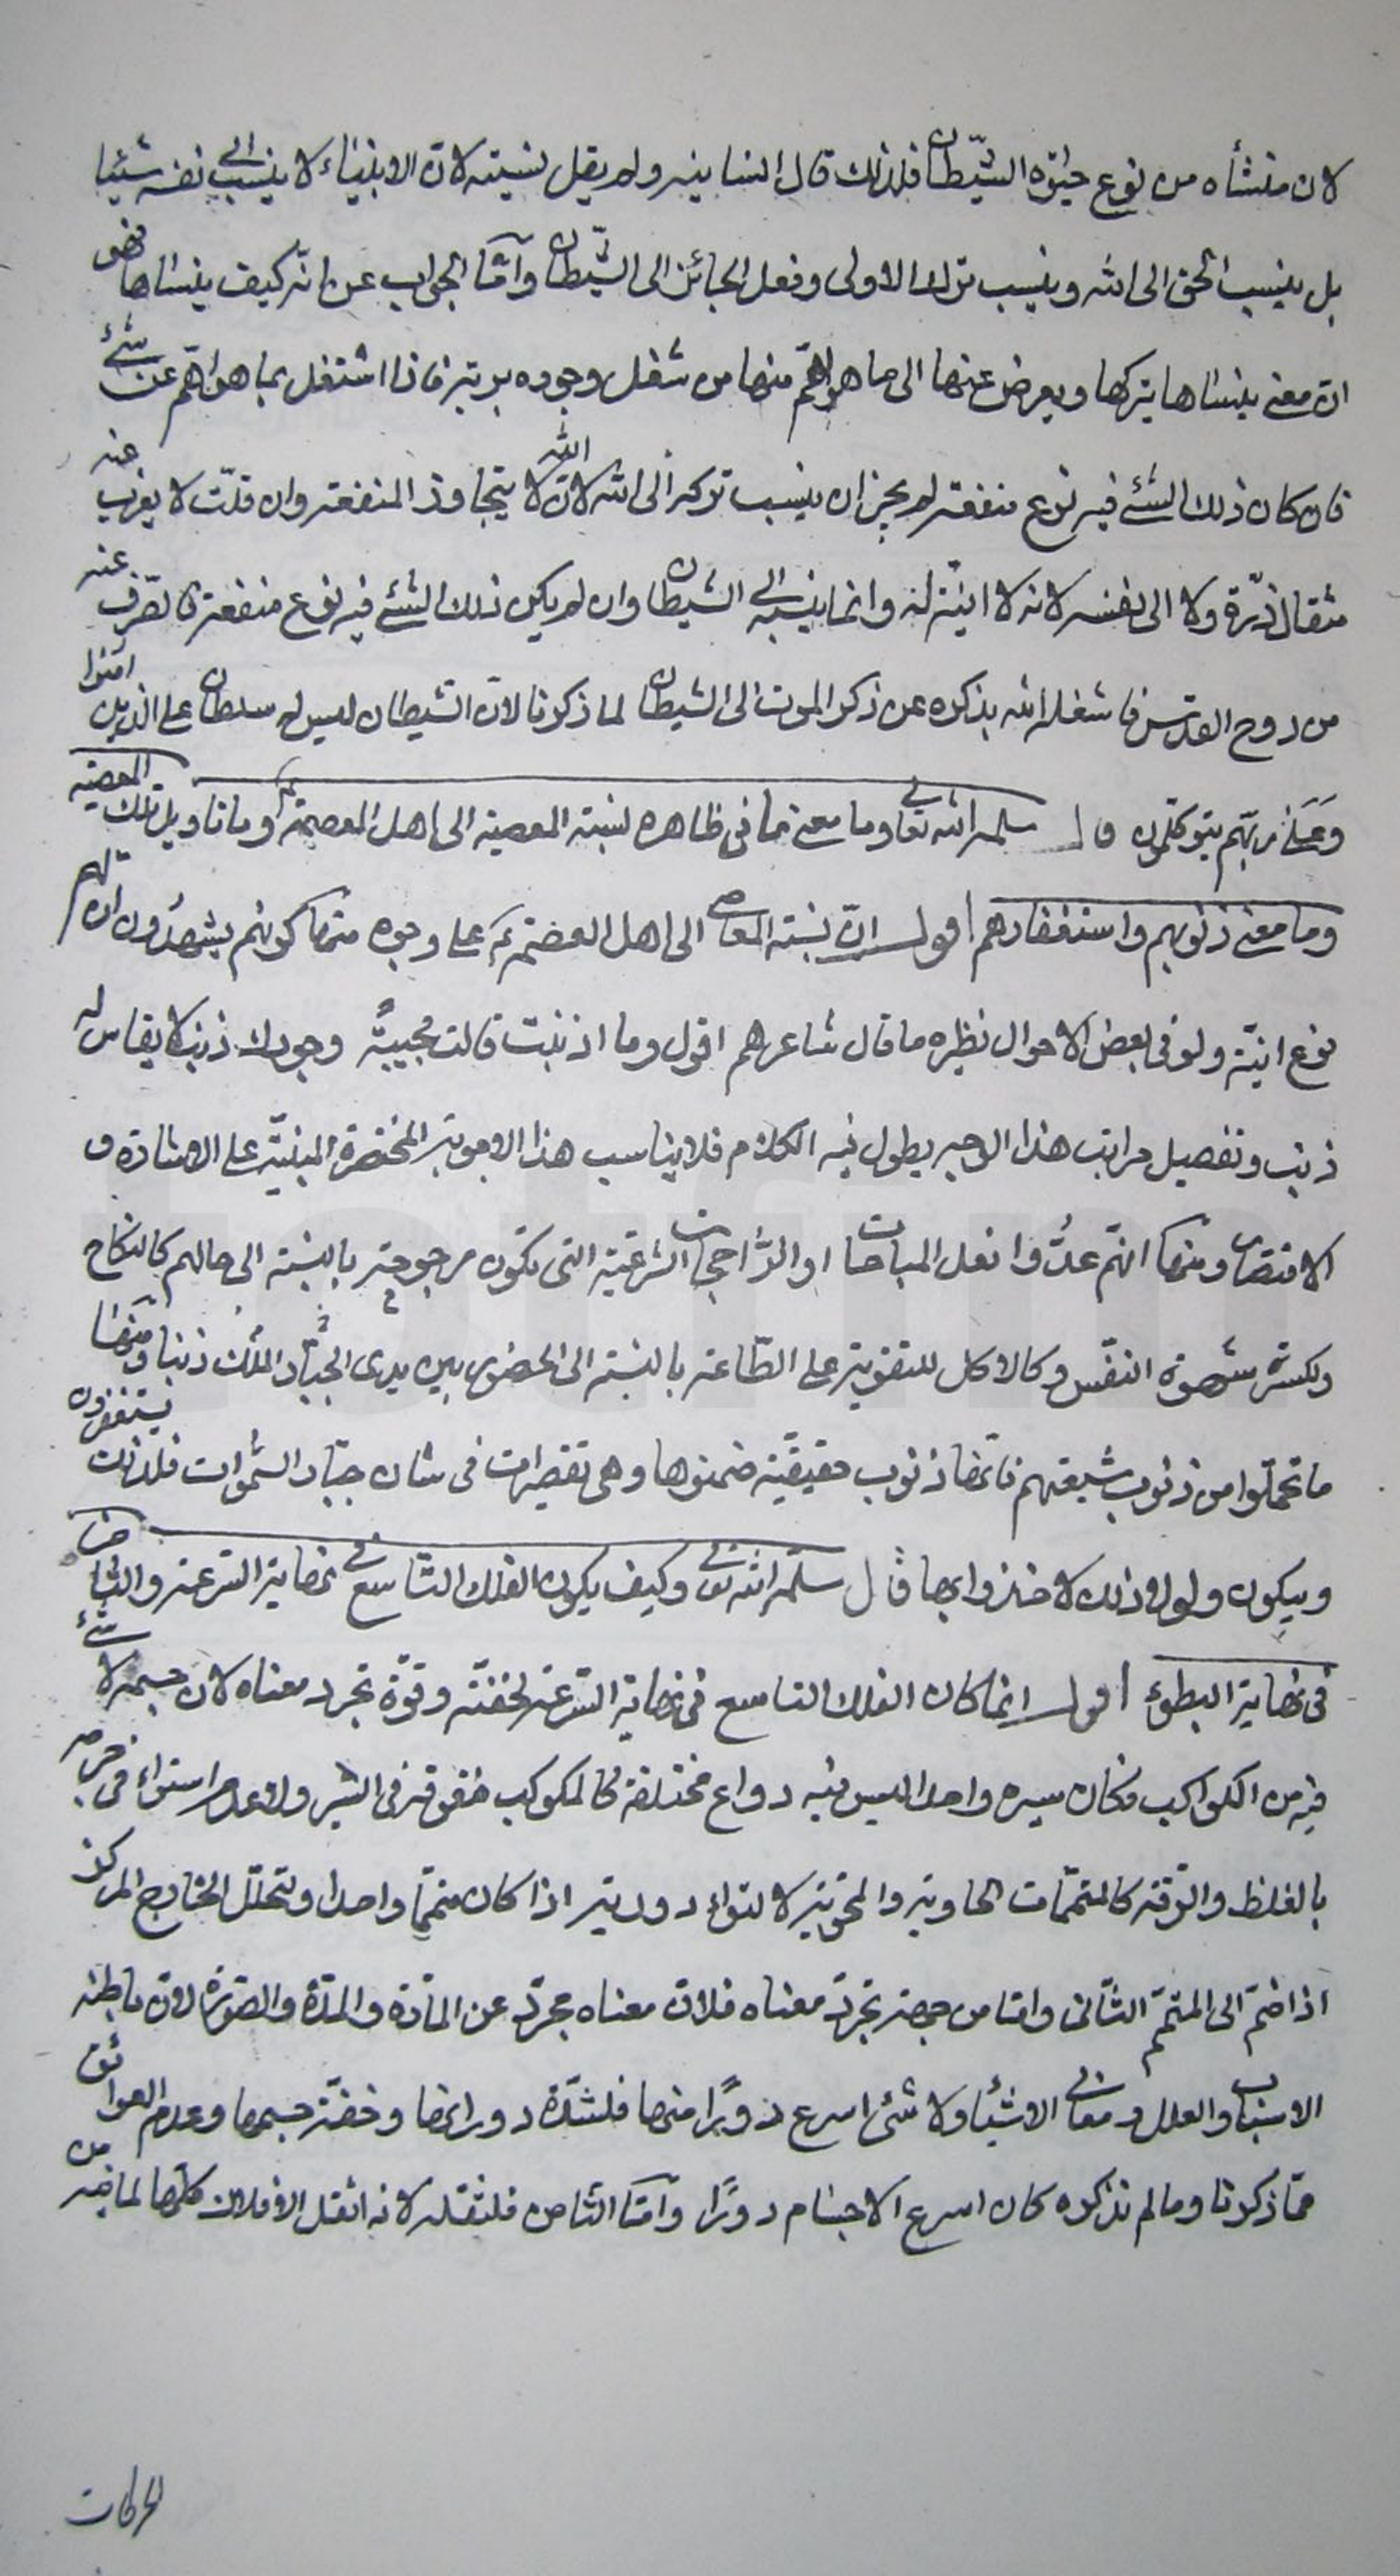 لان منشأه من نوع حيوة الشيطان فلذلك قال انسانيه ولم يقل نسيته لان الانبياء لا ينسب الى نفسه شيئا
بل ينسب الحق الى الله وينسب ترك الاولى وفعل الجائز الى الشيطان وامّا الجواب عن انّه كيف ينساها فهو
ان معنى ينساها يتركها ويعرض عنها الى ما هو اهمّ منها من شغل وجوده بربّه فاذا اشتغل بما هو اهمّ عن شئ
فان كان ذلك الشئ فيه نوع منفعة لم يجز ان ينسب تركه الى الله لانّ الله لا يتجاوز المنفعة وان قلّت لا يعزب عنه
مثقال ذرّة ولا الى نفسه لانه لا انيّة له وانما ينسبه الى الشيطان وان لم يكن ذلك الشئ فيه نوع منفعة فانصرف عنه
من روح القدس فاشغله الله بذكره عن ذكر الموت الى الشيطان لما ذكرنا لانّ الشيطان ليس له سلطان على الذين امنوا
وعَلى ربّهم يتوكلون قال سلمه الله تعالى وما معنى ما فى ظاهره نسبة المعصية الى اهل العصمة ع وما تاويل تلك المعصية
وما معنى ذنوبهم واستغفارهم اقول انّ نسبة المعاصى الى اهل العصمة ع على وجوه منها كونهم يشهدون ان لهم
نوع انيّة ولو فى بعض الاحوال نظيره ما قال شاعرهم اقول وما اذنبت قالت مجيبةً وجودك ذنب لا يقاس له
ذنب وتفصيل مراتب هذا الوجه يطول فيه الكلام فلا يناسب هذا الاجوبة المختصرة المبنيّة على الاشارة و
الاقتصار ومنها انهم عدُّوا فعل المباحات او الرّاجحات الشرعية التى تكون مرجوحة بالنسبة الى حالهم كالنكاح
ولكسر شهوة النفس وكالاكل للتقوية على الطّاعة بالنسبة الى الحضور بين يدى الجبّار الملك ذنبا ومنها
ما تحمّلوا من ذنوب شيعتهم فانّها ذنوب حقيقيّة ضمنوها وهى تقصيرات فى شان جبّار السّموات فلذلك يستغفرون
ويبكون ولولا ذلك لاخذوا بها قال سلّمه الله تعالى وكيف يكون الفلك التّاسع فى نهاية السرعة والثّامن
فى نهاية البطوء اقول انما كان الفلك التاسع فى نهاية السّرعة لخفّته وقوّة تجرد معناه لان جسمه لا شئ
فيه من الكواكب فكان سيره واحدا ليس فيه دواع مختلفة كالمكوكب مفوقة فى السير ولا عدم استواء فى جرمه
بالغلظ والرّقة كالمتمّمات الحاوية والمحويّة لالتواء دورية اذا كان متمّما واحدا وتحلّل الخارج المركز
اذا ضمّ الى المتمّم الثّانى وامّا من جهة تجرّد معناه فلانّ معناه مجرّد عن المادّة والمدّة والصّورة لانّ باطنه
الاسباب والعلل ومعانى الاشياء ولا شئ اسرع دورًا منها فلشدّة دورانها وخفّة جسمها وعدم العوائق
ممّا ذكرنا وما لم نذكره كان اسرع الاجسام دورًا وامّا الثامن فلثقله لانه اثقل الافلاك كلّها لما فيه من
الحركات